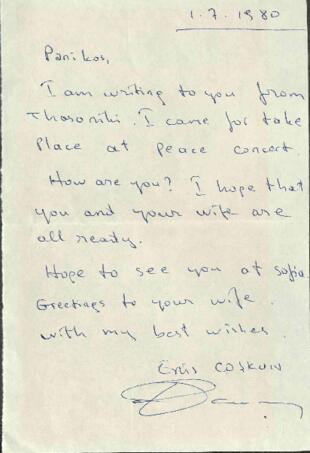 1.7.1980
Panikos,
I am writing to you from
Thasoniki. I came for take
Place at Peace concert.
How are you? I hope that
you and your wife are
all ready.
Hope to see you at sofia
Greetings to your wife.
with my best wishes.
COSKUN